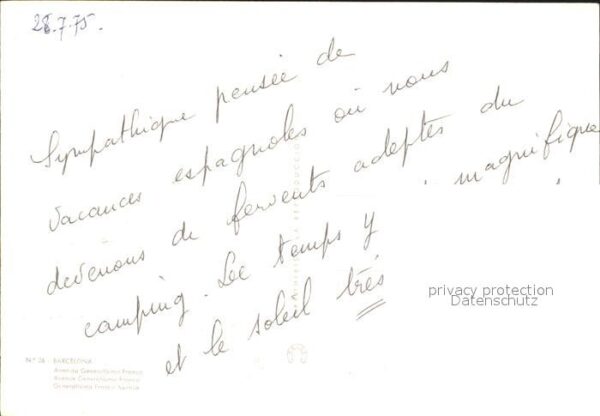 28.7.75.
Sympathique pensée de
vacances espagnoles où nous
devenons de fervents adeptes du
camping. Le temps y magnifique
et le soleil très
privacy protection
Datenschutz
N.º 26 - BARCELONA
Avenida Generalísimo Franco
Avenue Generalisimo Franco
Generalisimo Franco